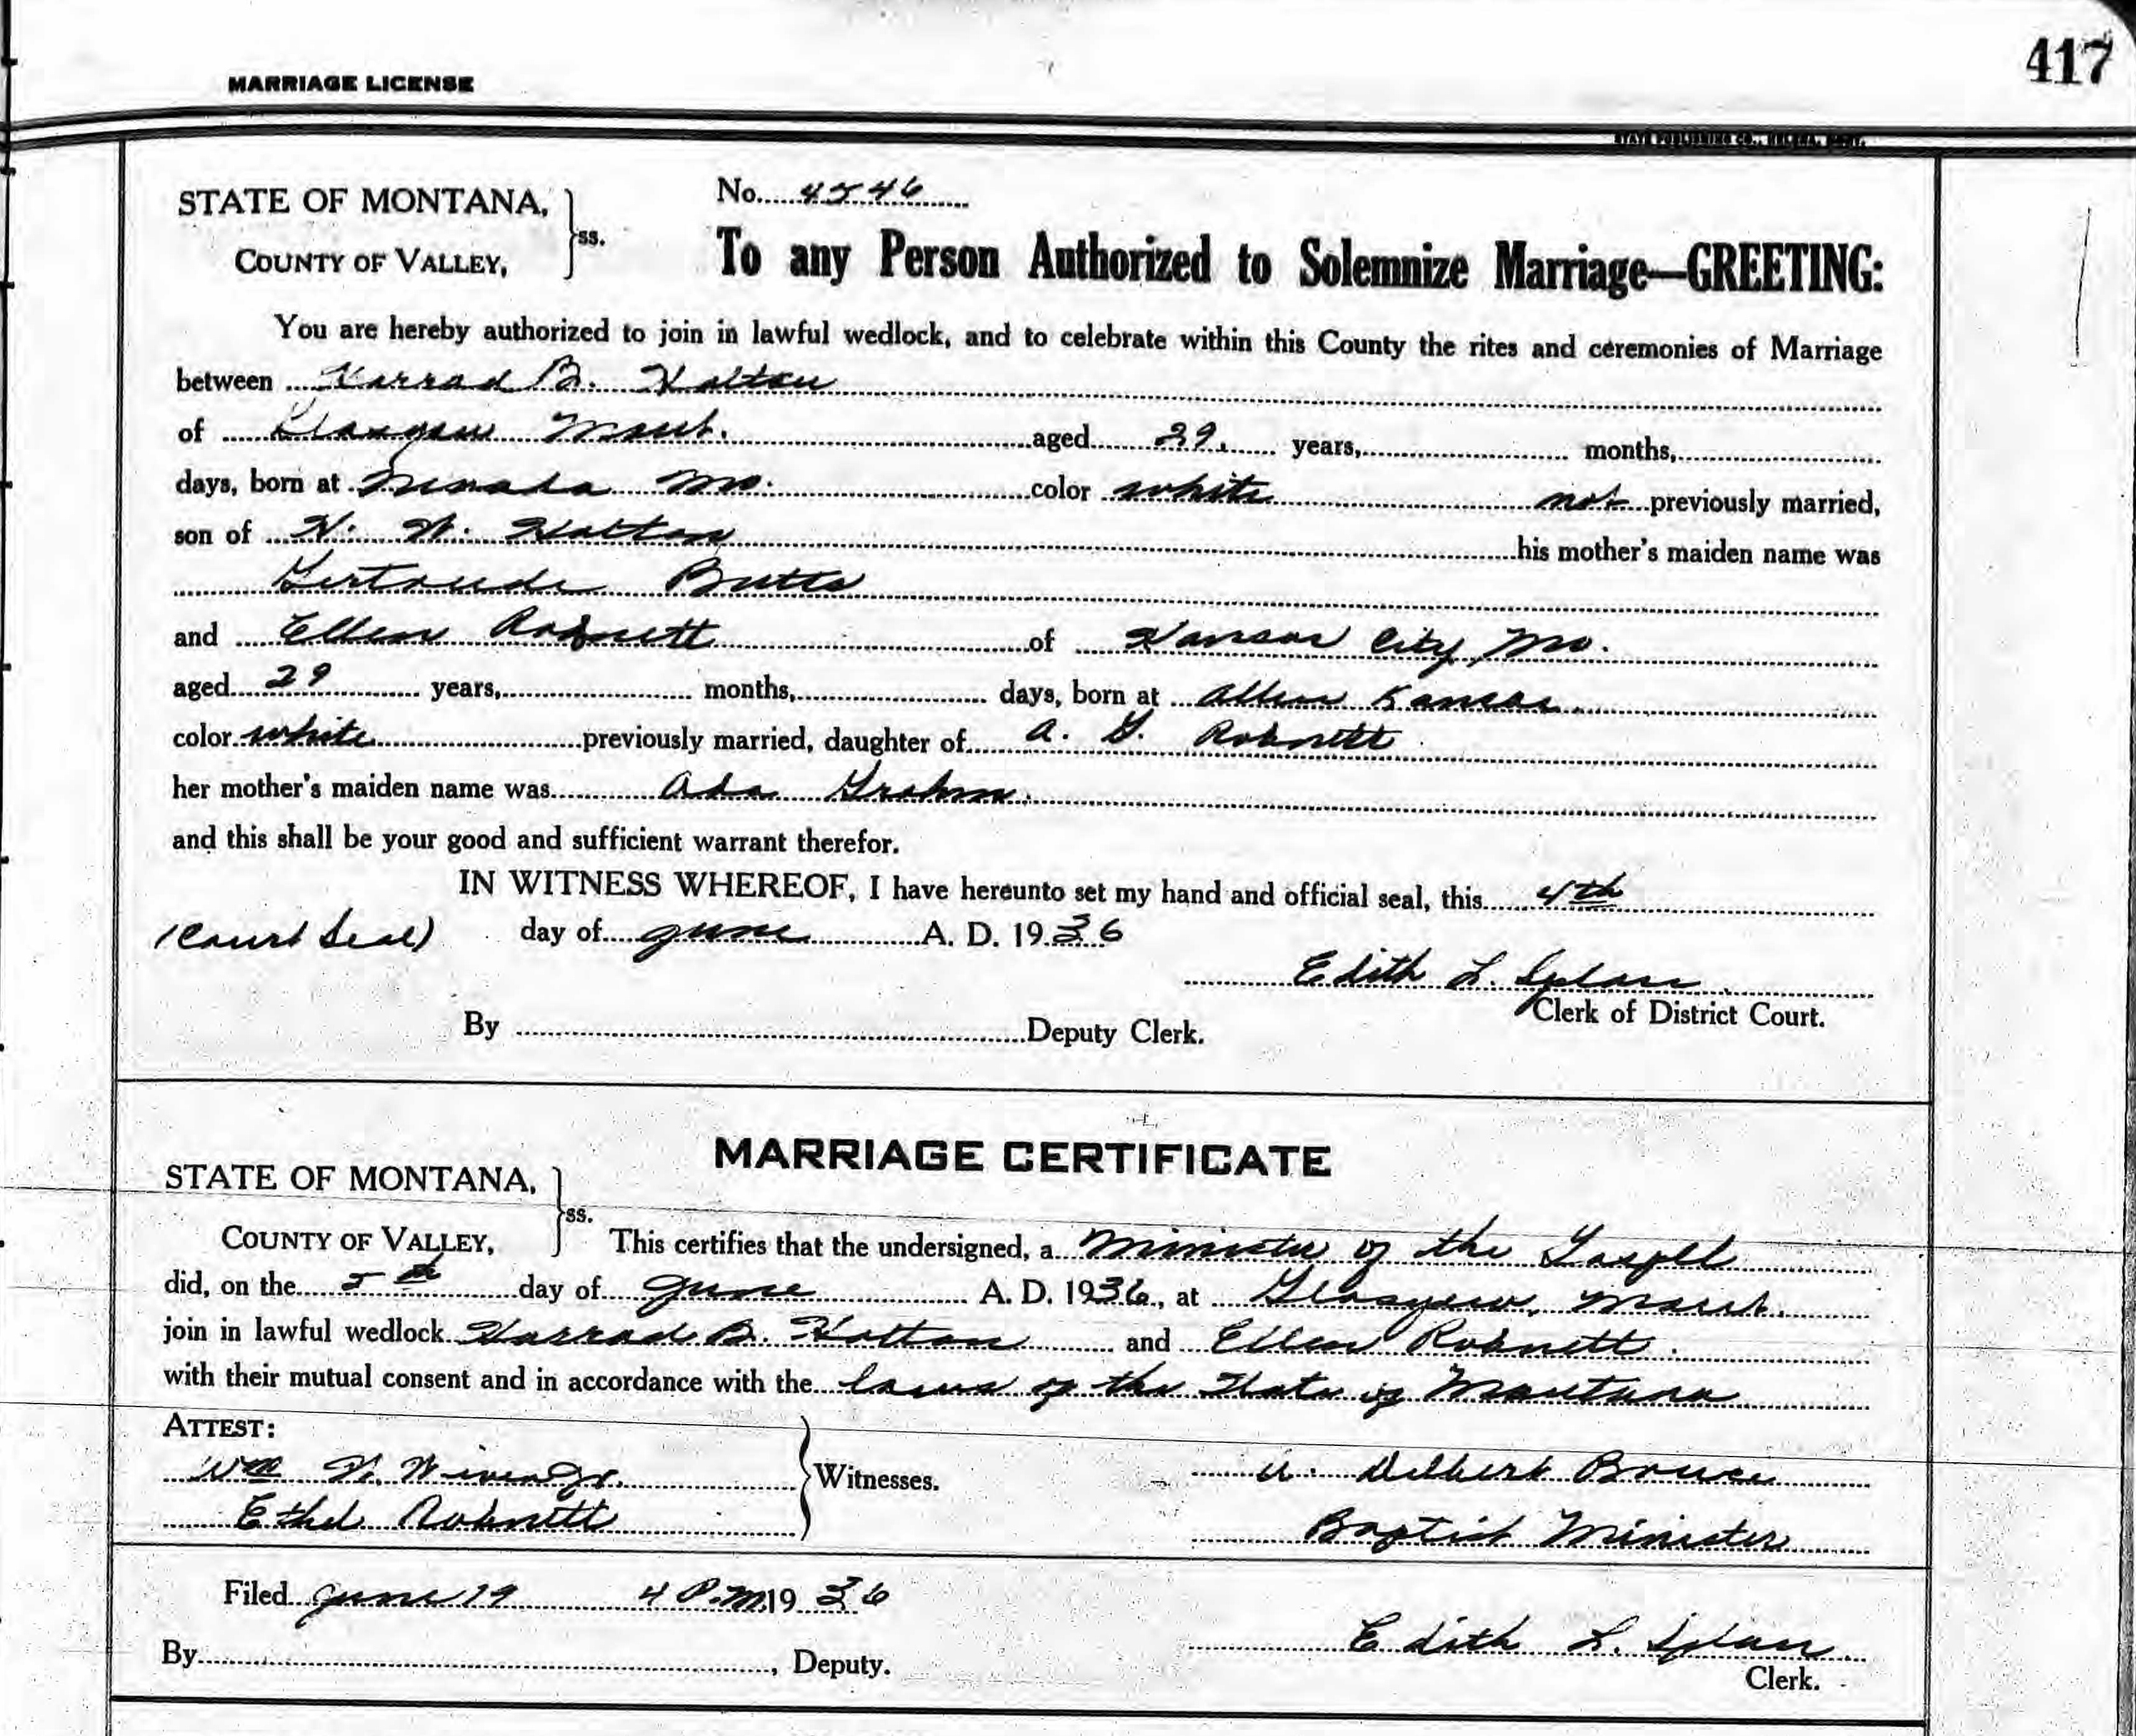 417
MARRIAGE LICENSE
STATE PUBLISHING CO., HELENA, MONT.
STATE OF MONTANA, } ss. No. 4546
COUNTY OF VALLEY,
To any Person Authorized to Solemnize Marriage—GREETING:
You are hereby authorized to join in lawful wedlock, and to celebrate within this County the rites and ceremonies of Marriage
between Harrad B. Holton
of Glasgow Mont. aged 29. years, months,
days, born at Nevada Mo. color white not previously married,
son of H. W. Holton his mother's maiden name was
Gertrude Butts
and Ellen Robnett of Kansas City Mo.
aged 29 years, months, days, born at Allen Kansas
color white previously married, daughter of A. G. Robnett
her mother's maiden name was Ada Grahm.
and this shall be your good and sufficient warrant therefor.
IN WITNESS WHEREOF, I have hereunto set my hand and official seal, this 4th
(Court Seal) day of June A. D. 1936
Edith L. Splan
Clerk of District Court.
By Deputy Clerk.
MARRIAGE CERTIFICATE
STATE OF MONTANA, } ss.
COUNTY OF VALLEY, This certifies that the undersigned, a Minister of the Gospel
did, on the 5th day of June A. D. 1936, at Glasgow, Mont.
join in lawful wedlock Harrad B. Holton and Ellen Robnett.
with their mutual consent and in accordance with the laws of the State of Montana
ATTEST:
Wm Jr. } Witnesses. A. Delbert Bruce
Ethel Robnett Baptist Minister
Filed June 19 4 P.M. 1936
Edith L. Splan
By , Deputy. Clerk.